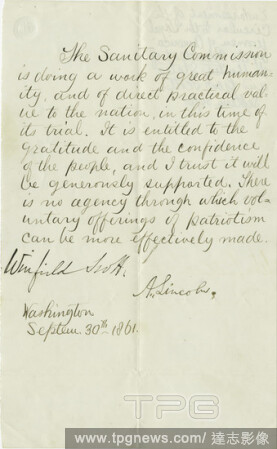 The Sanitary Commission
is doing a work of great human-
ity, and of direct practical val-
ue to the nation, in this time of
its trial. It is entitled to the
gratitude and the confidence
of the people, and I trust it will
be generously supported. There
is no agency through which vol-
untary offerings of patriotism
can be more effectively made.
Winfield Scott.
A. Lincoln.
Washington
Septem. 30th 1861.
TPG
www.tpgnews.com / 達志影像